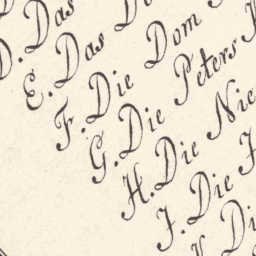 D. Das
E. Das
F. Die Dom
G. Die Peters
H. Die Nie
J. Die
K. Di